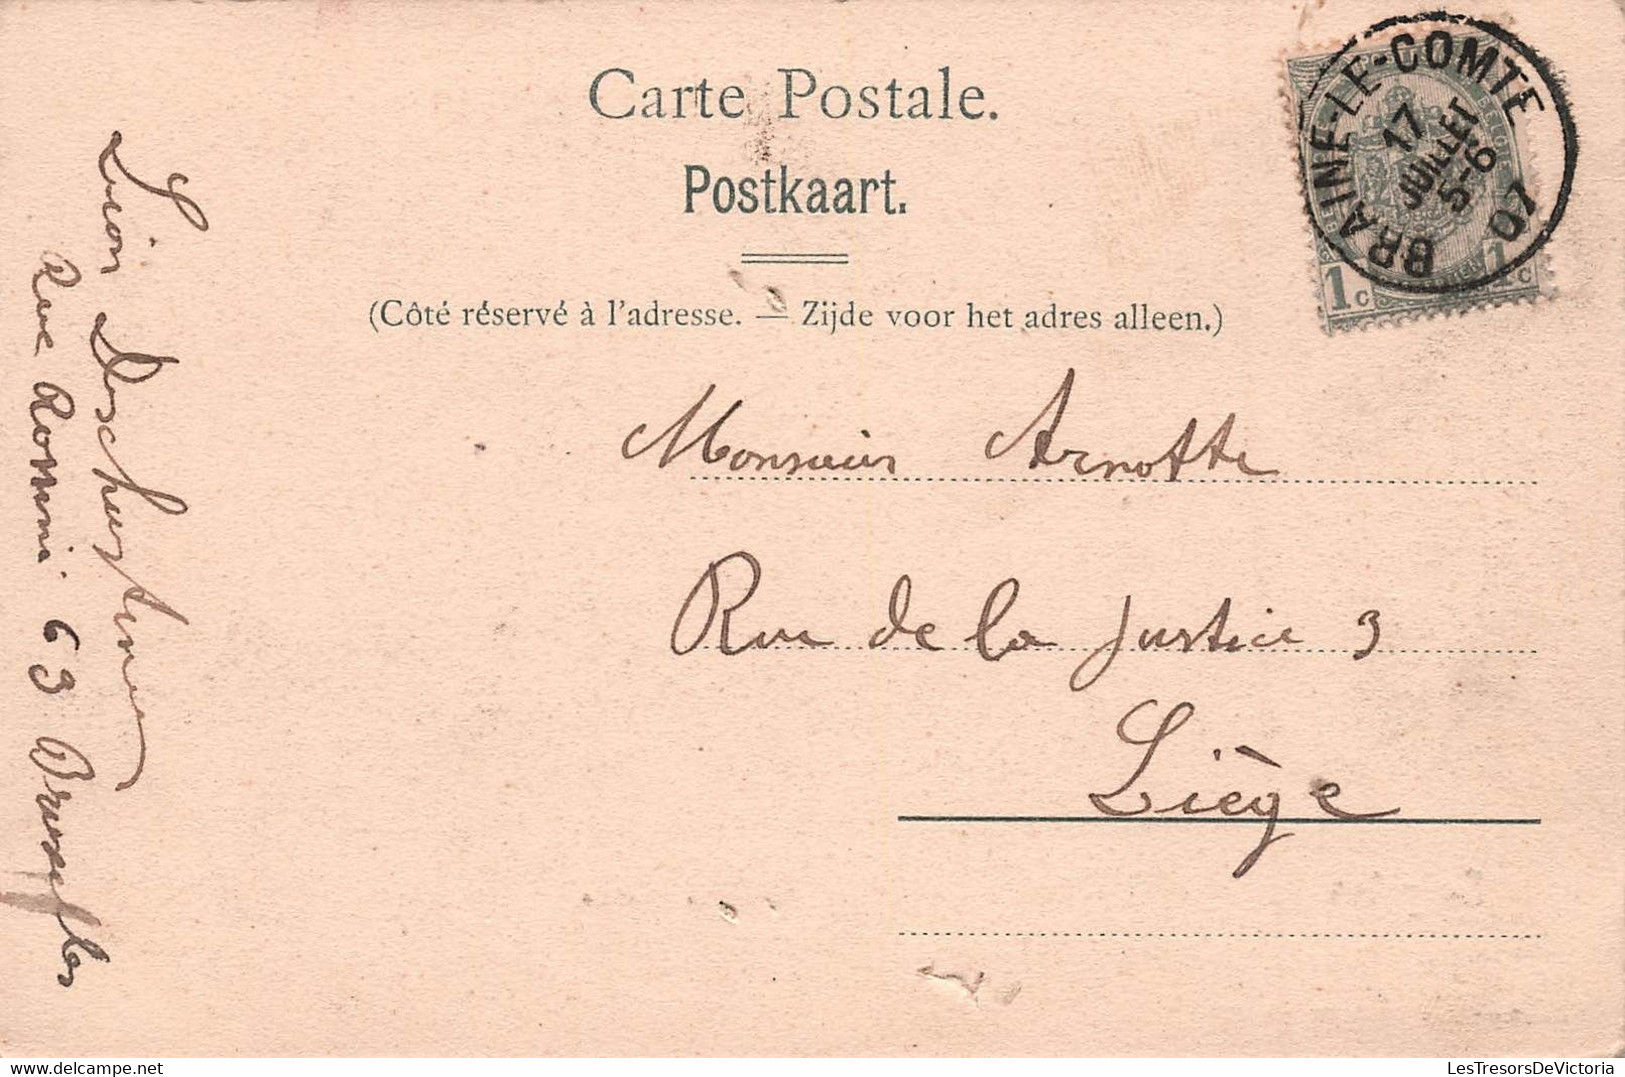 Carte Postale.
Postkaart.
(Côté réservé à l'adresse. — Zijde voor het adres alleen.)
BRAINE-LE-COMTE
17
JUILLET
5-6
07
BELGIQUE
1c 1c
Monsieur Arnotte
Rue de la Justice 3
Liège
Rue 63 Bruxelles
LesTresorsDeVictoria